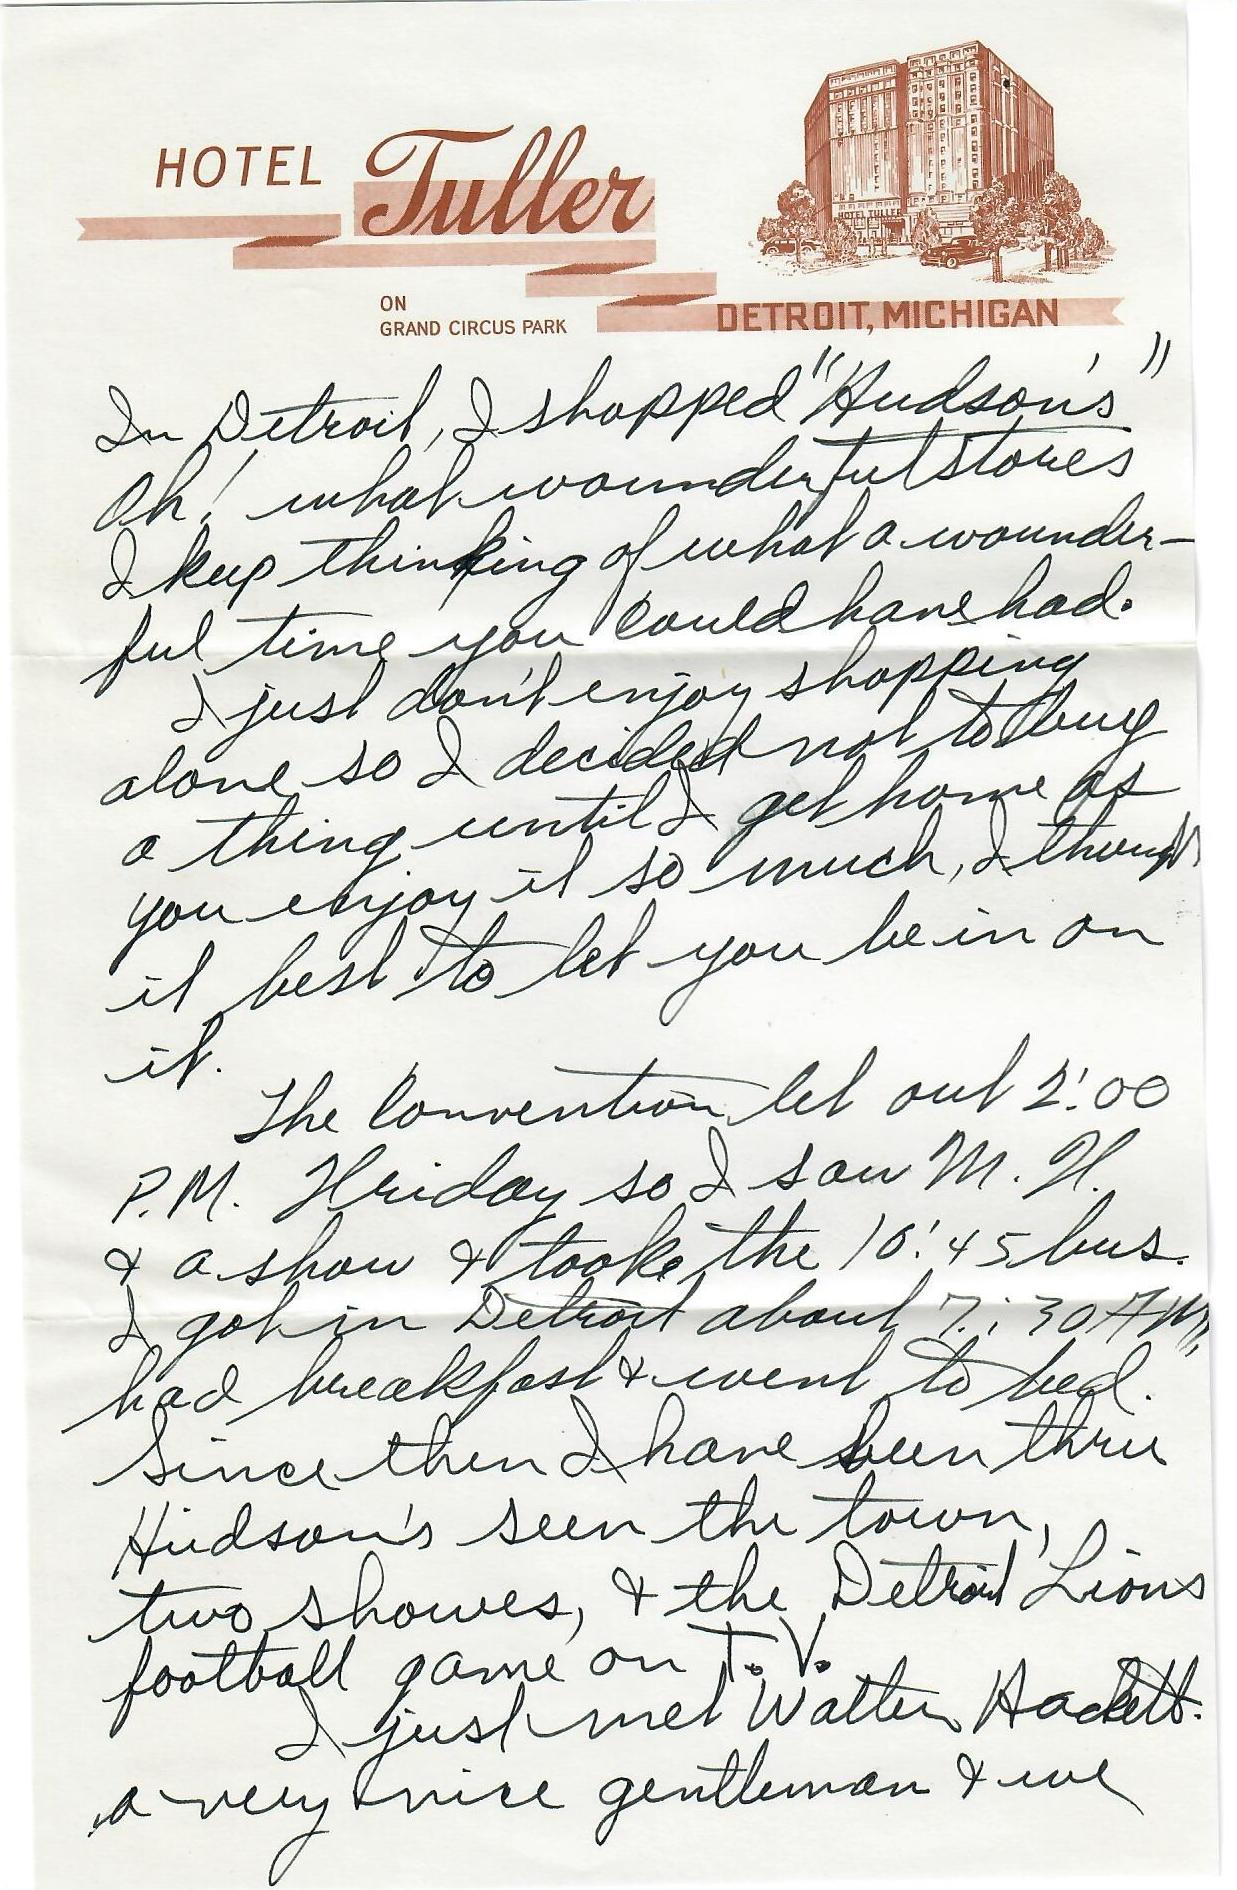 HOTEL Tuller
HOTEL TULLER
ON
GRAND CIRCUS PARK
DETROIT, MICHIGAN
In Detroit, I shopped "Hudson's"
Oh! what wounderful stores
I keep thinking of what a wounder-
ful time you could have had.
I just don't enjoy shopping
alone so I decided not to buy
a thing until I get home as
you enjoy it so much, I thought
it best to let you be in on
it.
The Convention let out 2:00
P.M. Friday so I saw M. H.
& a show & tooke the 10:45 bus.
I got in Detroit about 7:30 AM,
had breakfast & went to bed.
Since then I have been thru
Hudson's seen the town,
two showes, & the Detroit Lions
football game on T.V.
I just met Walter Hackett.
a very nice gentleman & we